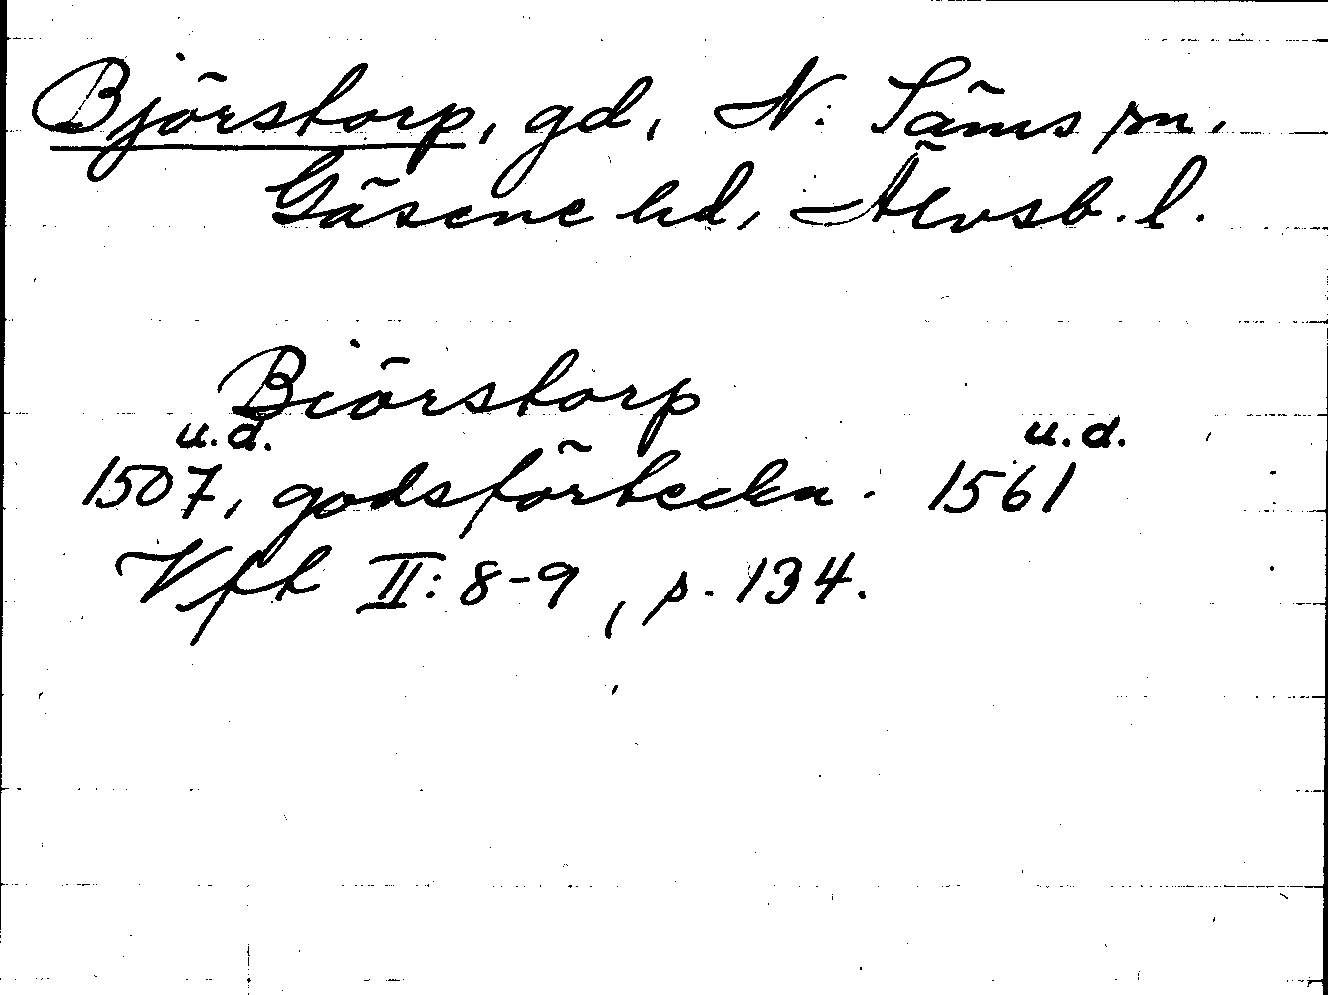 Björstorp, gd, N: Säms sn.
Gäsene hd, Älvsb. l.
Biörstorp
u.d. u.d.
1507, godsförteckn. 1561
Vft II: 8-9, s. 134.